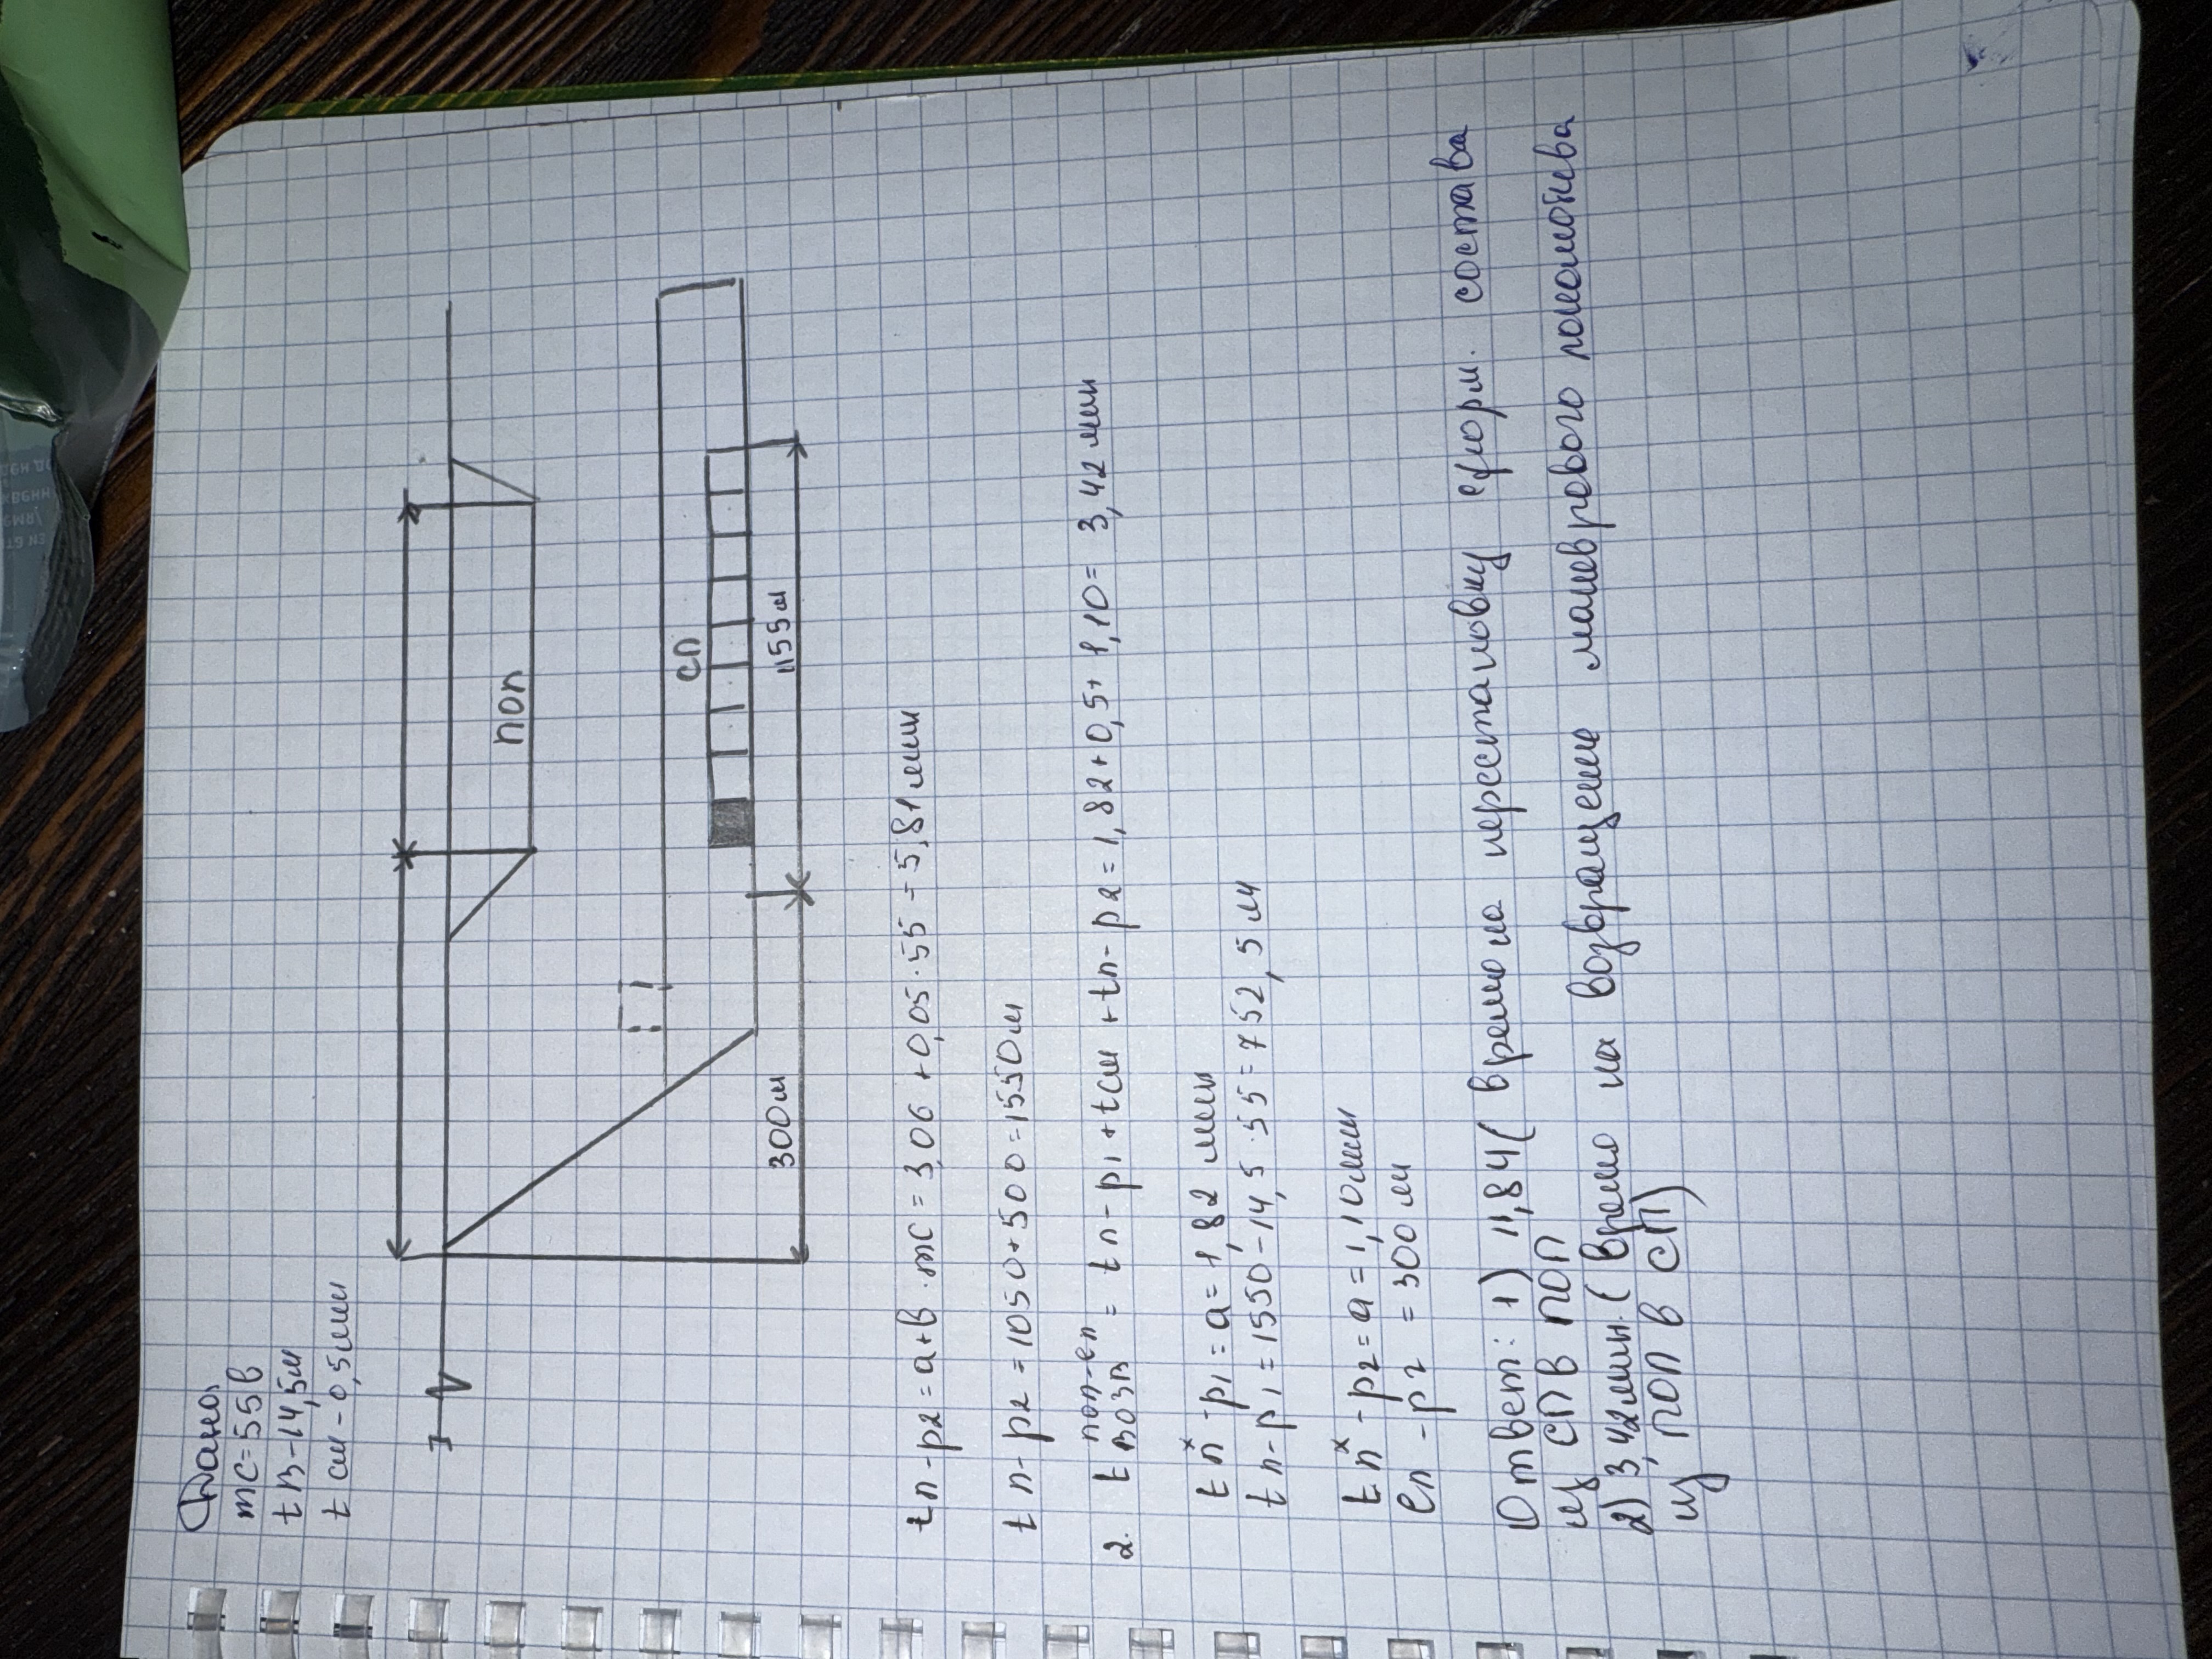 Дано:
mc=55в
tв-14,5м
tсм-0,5мин
I
поп
сп
300м
1155м
tп-р2=а+в·mc=3,06+0,05·55=5,81мин
tп-р2=1050+500=1550м
2. tвозв поп-сп = tп-р1+tсм+tп-р2=1,82+0,5+1,10=3,42мин
tпˣ-р1=а=1,82мин
tп-р1=1550-14,5·55=752,5м
tпˣ-р2=а=1,10мин
lп-р2=300м
Ответ: 1) 11,84( время на перестановку сформ. состава
из СП в ПОП
2) 3,42мин.( время на возвращение маневрового локомотива
из ПОП в СП)